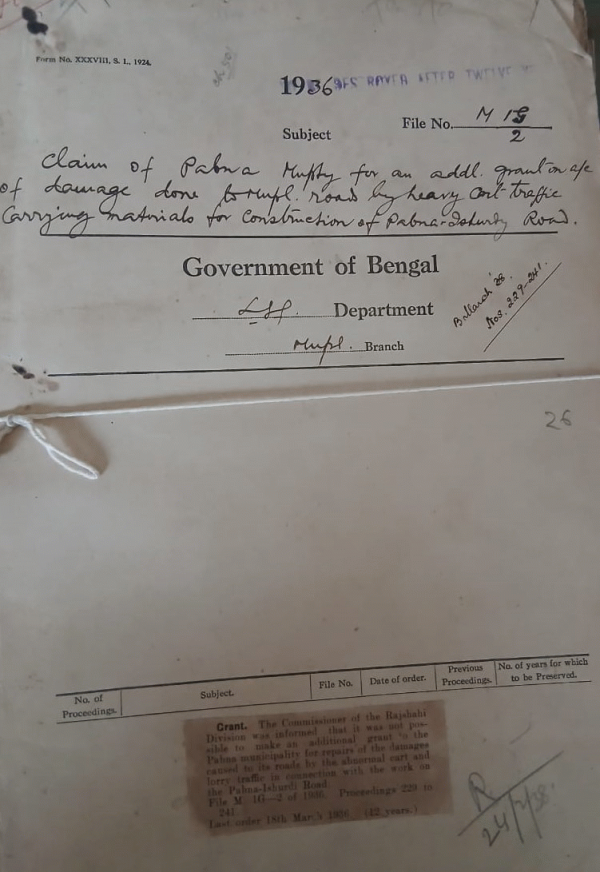 Form No. XXXVIII, S. I., 1924.
1936 AFTER TWELVE
Subject
File No. M 1G
2
Claim of Pabna Mupty for an addl. grant on a/c
of damage done to Mupl. road by heavy cart traffic
Carrying materials for construction of Pabna-Ishurdy Road.
Government of Bengal
Department
Mupl. Branch
B. March '36.
Nos. 229-241.
26
No. of Proceedings.
Subject.
File No.
Date of order.
Previous Proceedings.
No. of years for which to be Preserved.
Grant. The Commissioner of the Rajshahi
Division was informed that it was not pos-
sible to make an additional grant to the
Pabna municipality for repairs of the damages
caused to its roads by the abnormal cart and
lorry traffic in connection with the work on
the Pabna-Ishurdi Road.
File M. 1G—2 of 1936. Proceedings 229 to
241.
Last order 18th March 1936. (12 years.)
R